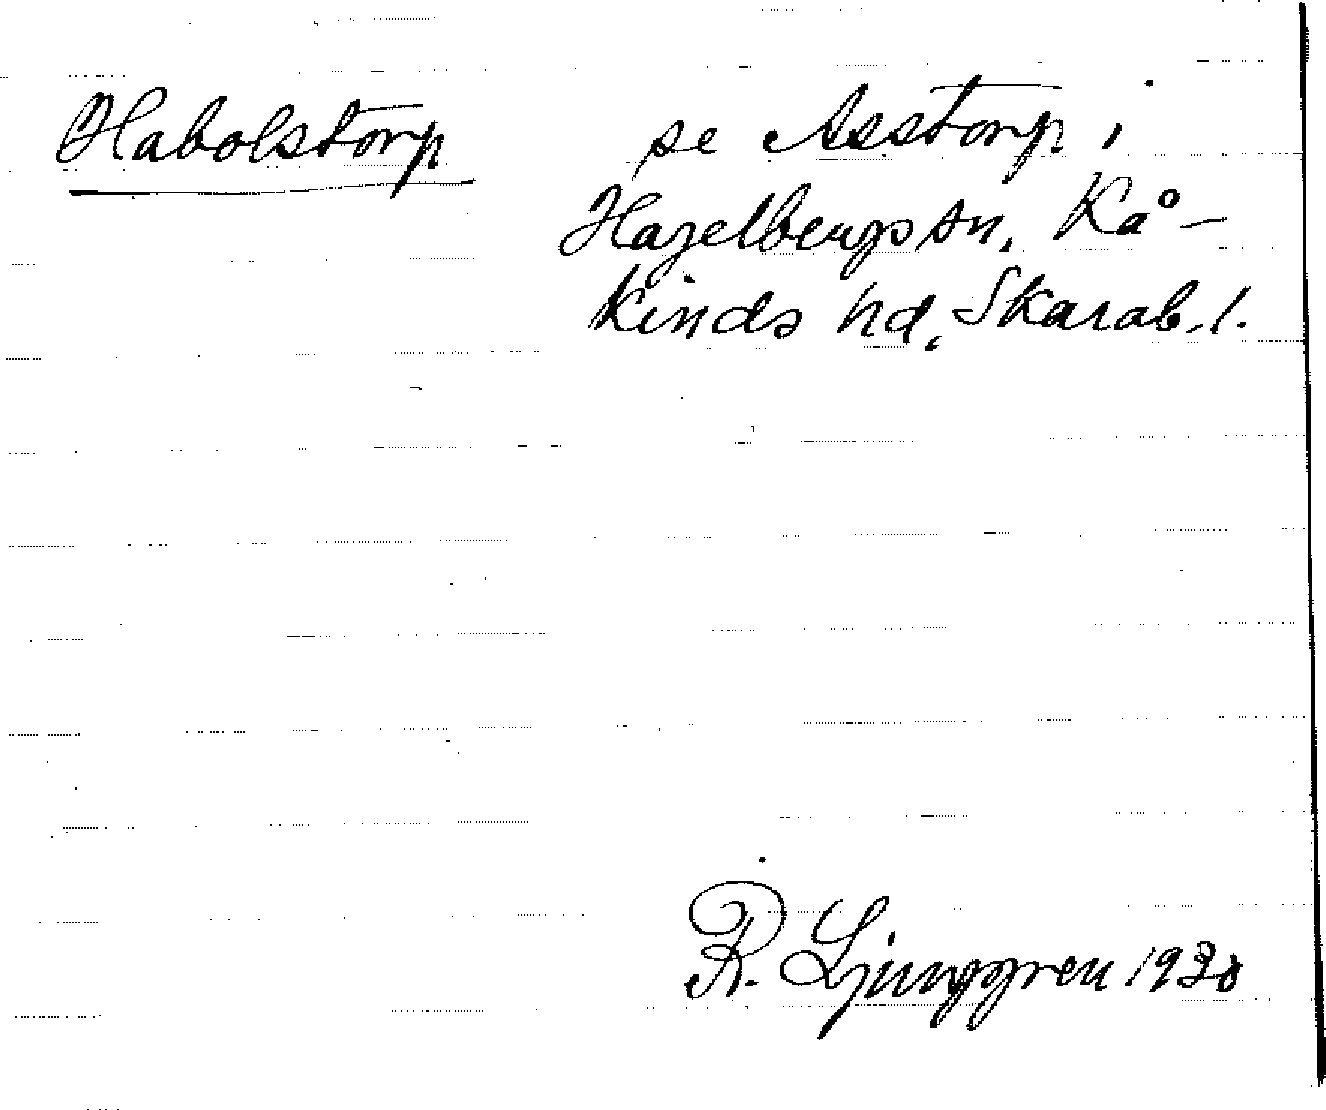 Habolstorp se Asstorp i
Hagelbergs sn, Kå-
kinds hd, Skarab. l.
R. Ljunggren 1930